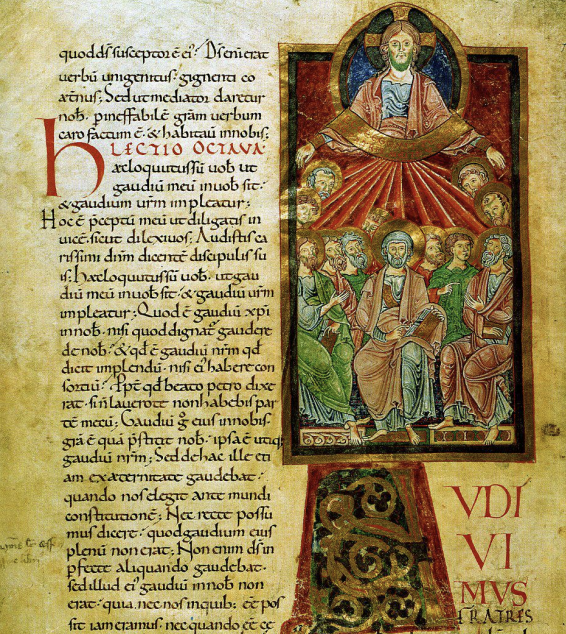 quod ds̄ susceptor ē ei'. Ds̄ eni erat
verbū unigenitus'. gignenti co
æternus; Sed ut mediator daretur
nob̄. p ineffabilē grām verbum
caro factum ē. & habitau in nobis;
LECTIO OCTAVA
Hæc loquutus sū uob̄ ut
gaudiū meū in uob̄ sit.
& gaudium urm̄ impleatur;
Hoc ē p̄ceptū meū ut diligatis in
uicē. sicut dilexi uos; Audistis ca
rissimi dn̄m dicentē discipulis su
is; Hæc loquutus sū uob̄. ut gau
diū meū in uob̄ sit. & gaudiū urm̄
impleatur; Quod ē gaudiū xp̄i
in nob̄. nisi quod dignat' gaudere
de nob̄. & qd̄ ē gaudiū nrm̄ qd̄
dicit implendū. nisi ei' habere con
sortiū. Ppt̄ qd̄ beato petro dixe
rat. si n̄ lauero te non habebis par
tē mecū; Gaudiū g̊ eius in nobis.
grā ē quā p̄stitit nob̄. ipsa ē utiq;
gaudiū nrm̄; Sed de hac ille eti
am ex æternitate gaudebat.
quando nos elegit ante mundi
constitutionē; Nec recte possū
mus dicere. quod gaudium eius
plenū non erat; Non enim ds̄ in
p̄fecte aliquando gaudebat.
sed illud ei' gaudiū in nob̄ non
erat. quia nec nos in quib; ēē pos
sit iam eramus. nec quando ēē cę
AVDI
VI
MVS
FRATRES